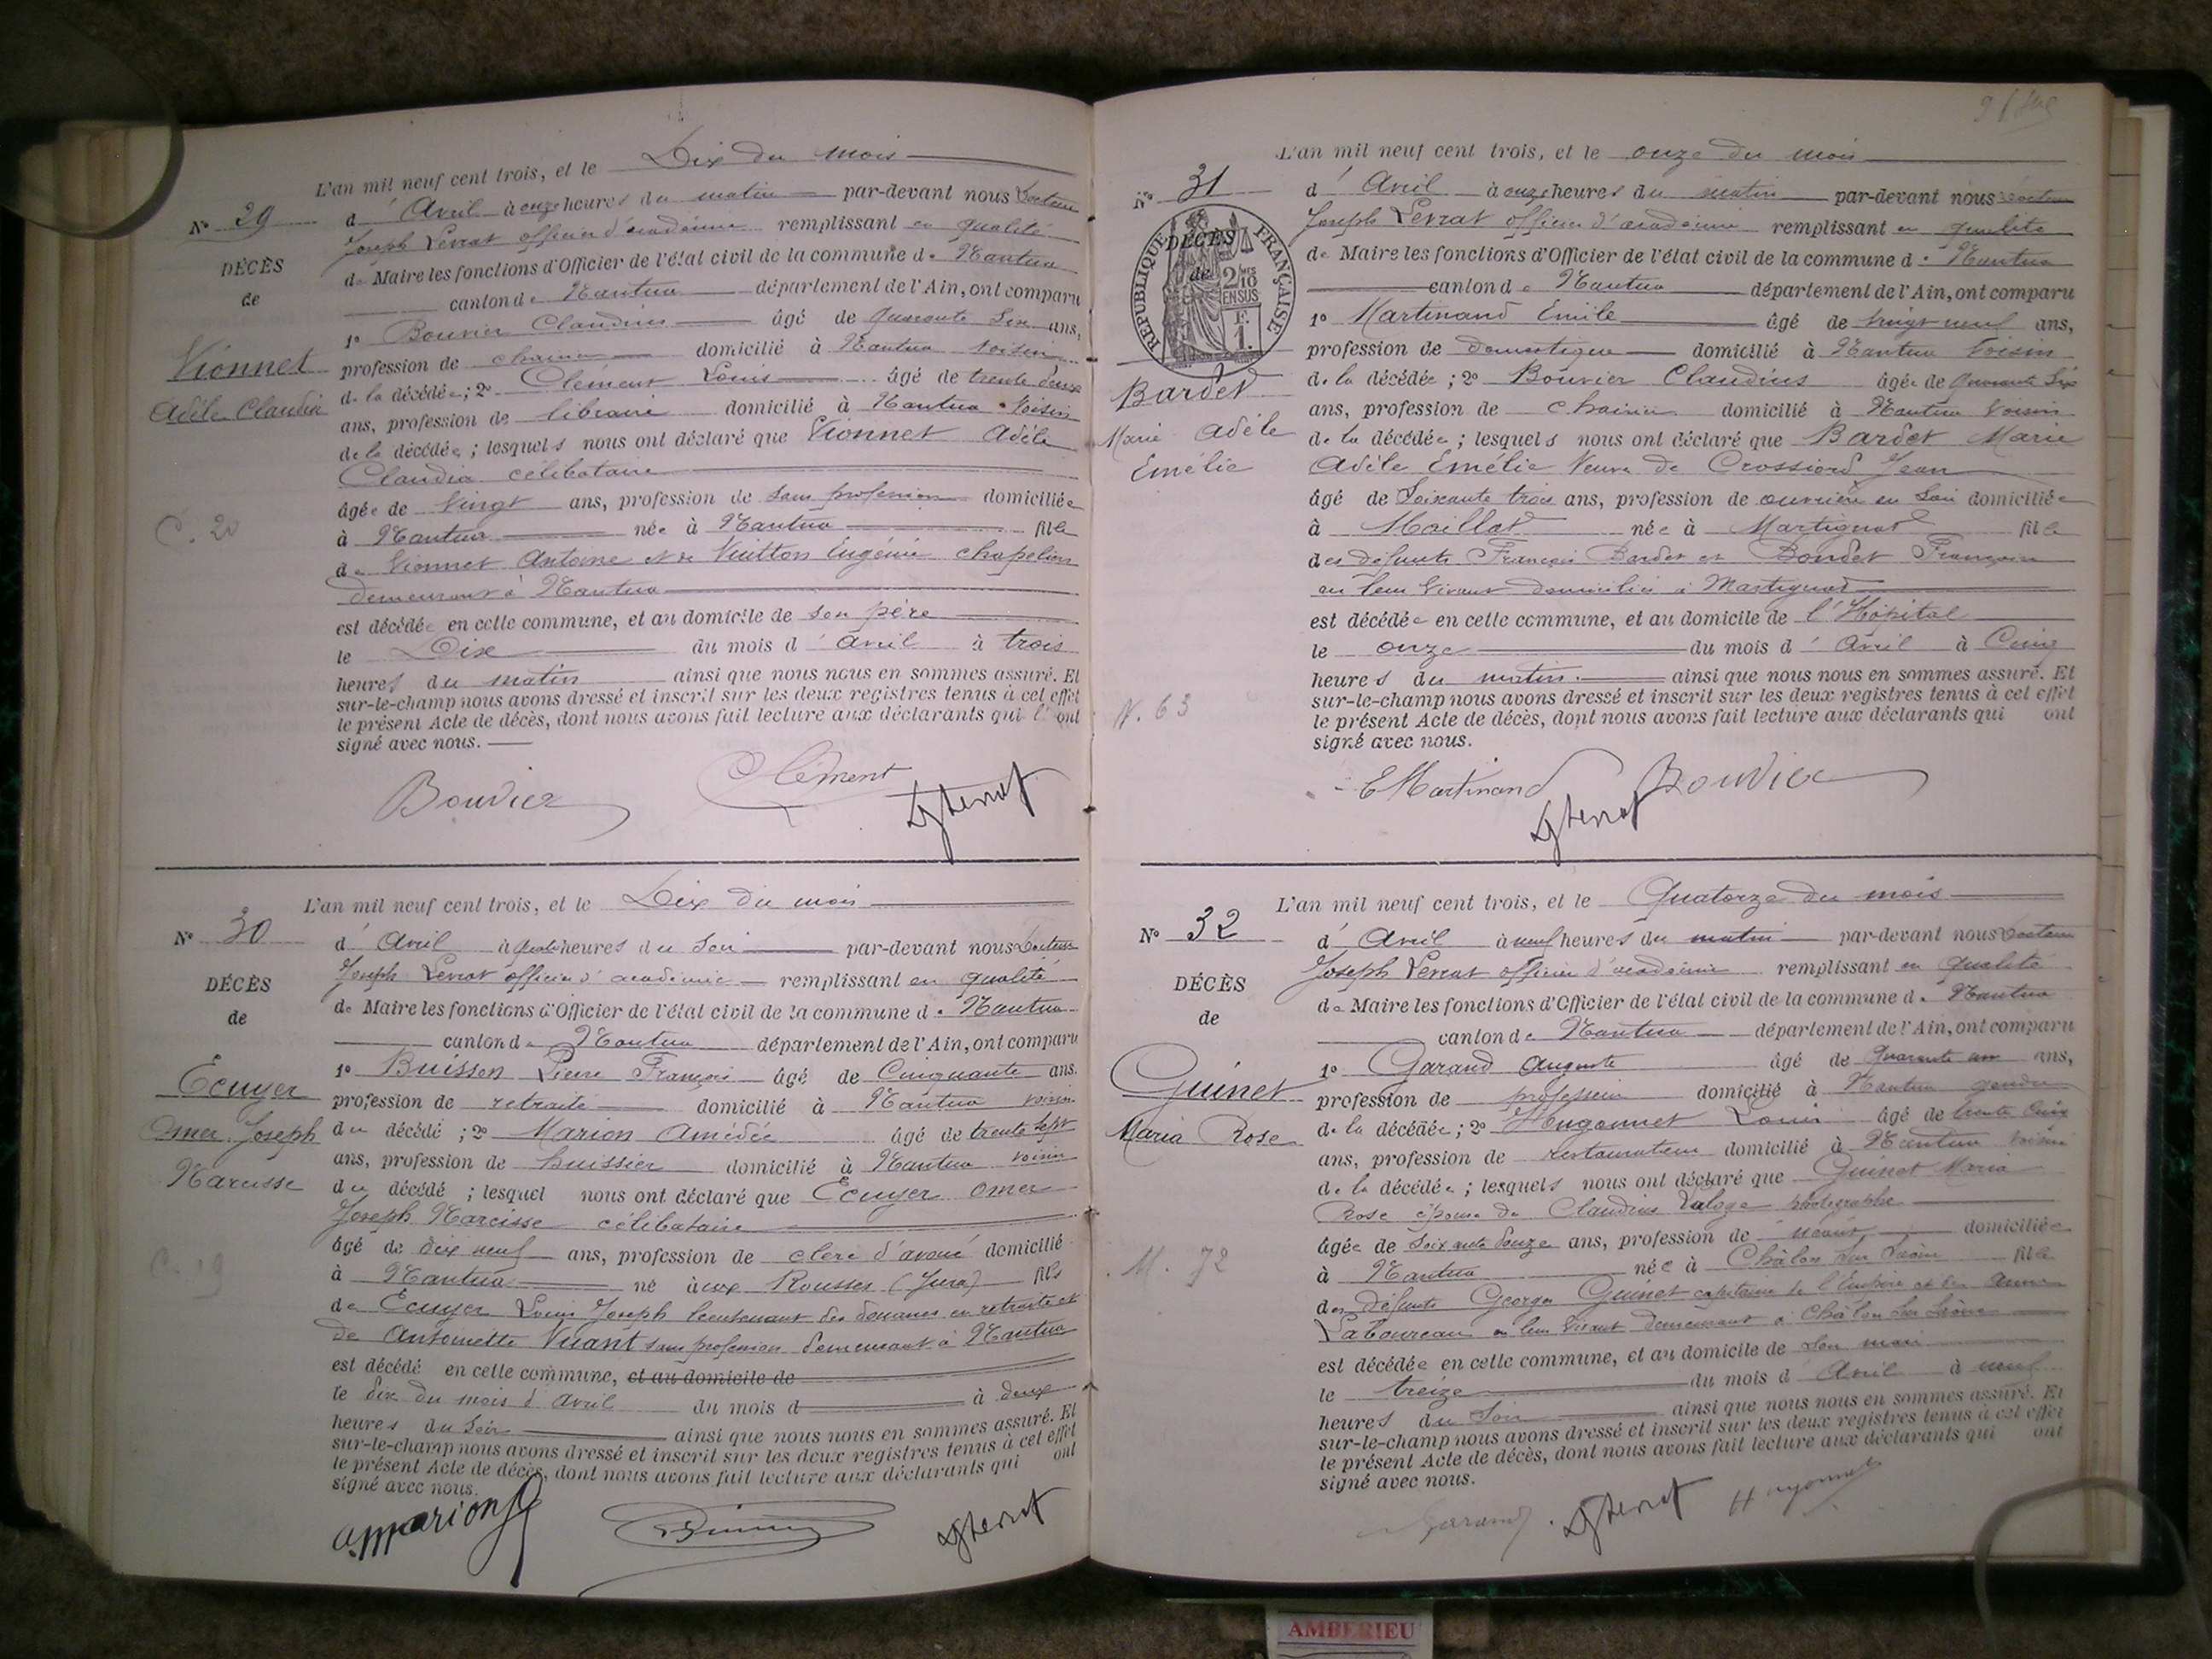 L'an mil neuf cent trois, et le Dix du mois
N° 29
d'Avril à onze heures du matin par-devant nous Docteur
Joseph Levrat officier d'académie remplissant en qualité
DÉCÈS
de Maire les fonctions d'Officier de l'état civil de la commune de Nantua
de
canton de Nantua département de l'Ain, ont comparu
1° Bouvier Claudius âgé de quarante six ans,
Vionnet
profession de domicilié à Nantua voisin
Adèle Claudia
de la décédée; 2° Clément Louis âgé de trente deux
ans, profession de libraire domicilié à Nantua voisin
de la décédée; lesquels nous ont déclaré que Vionnet Adèle
Claudia célibataire
âgée de vingt ans, profession de sans profession domiciliée
C. 20
à Nantua née à Nantua fille
de Vionnet Antoine et de Vuitton Eugénie
demeurant à Nantua
est décédée en cette commune, et au domicile de son père
le Dix du mois d'avril à trois
heures du matin ainsi que nous nous en sommes assuré. Et
sur-le-champ nous avons dressé et inscrit sur les deux registres tenus à cet effet
le présent Acte de décès, dont nous avons fait lecture aux déclarants qui l'ont
signé avec nous.
Bouvier Clément
L'an mil neuf cent trois, et le Dix du mois
N° 30
d'Avril à quatre heures du soir par-devant nous Docteur
Joseph Levrat officier d'académie remplissant en qualité
DÉCÈS
de Maire les fonctions d'Officier de l'état civil de la commune de Nantua
de
canton de Nantua département de l'Ain, ont comparu
1° Buisson Pierre François âgé de Cinquante ans.
Ecuyer
profession de retraité domicilié à Nantua voisin
Omer Joseph
du décédé; 2° Marion Amédée âgé de trente sept
ans, profession de huissier domicilié à Nantua voisin
Narcisse
du décédé; lesquel nous ont déclaré que Ecuyer Omer
Joseph Narcisse célibataire
âgé de dix neuf ans, profession de clerc d'avoué domicilié
C. 19
à Nantua né aux Rousses (Jura) fils
de Ecuyer Louis Joseph lieutenant des douanes en retraite et
de Antoinette Vuant sans profession demeurant à Nantua
est décédé en cette commune, et au domicile de
le dix du mois d'avril du mois d à deux
heures du soir ainsi que nous nous en sommes assuré. Et
sur-le-champ nous avons dressé et inscrit sur les deux registres tenus à cet effet
le présent Acte de décès, dont nous avons fait lecture aux déclarants qui ont
signé avec nous.
L'an mil neuf cent trois, et le onze du mois
N° 31
d'Avril à onze heures du matin par-devant nous docteur
Joseph Levrat officier d'académie remplissant en qualité
RÉPUBLIQUE FRANÇAISE
DÉCÈS
de Maire les fonctions d'Officier de l'état civil de la commune de Nantua
de
2/10 EN SUS
F. 1.
canton de Nantua département de l'Ain, ont comparu
1° Martinand Emile âgé de vingt neuf ans,
profession de domestique domicilié à Nantua voisin
Bardet
de la décédée; 2° Bouvier Claudius âgé de quarante six
ans, profession de domicilié à Nantua voisin
Marie Adèle
de la décédée; lesquels nous ont déclaré que Bardet Marie
Emélie
Adèle Emélie veuve de Crossiord Jean
âgé de soixante trois ans, profession de ouvrière en soie domiciliée
à Maillat née à Martignat fille
des défunts François Bardet et Bondet
en leur vivant domiciliés à Martignat
est décédée en cette commune, et au domicile de l'Hôpital
le onze du mois d'Avril à cinq
heures du matin ainsi que nous nous en sommes assuré. Et
sur-le-champ nous avons dressé et inscrit sur les deux registres tenus à cet effet
V. 63
le présent Acte de décès, dont nous avons fait lecture aux déclarants qui ont
signé avec nous.
E Martinand Bouvier
L'an mil neuf cent trois, et le Quatorze du mois
N° 32
d'Avril à neuf heures du matin par-devant nous Docteur
Joseph Levrat officier d'académie remplissant en qualité
DÉCÈS
de Maire les fonctions d'Officier de l'état civil de la commune de Nantua
de
canton de Nantua département de l'Ain, ont comparu
1° Garand Auguste âgé de quarante un ans,
Guinet
profession de professeur domicilié à Nantua gendre
Maria Rose
de la décédée; 2° Hugonnet Louis âgé de trente cinq
ans, profession de restaurateur domicilié à Nantua voisin
de la décédée; lesquels nous ont déclaré que Guinet Maria
Rose épouse de Claudius Laloge photographe
âgée de soixante douze ans, profession de néant domiciliée
M. 72
à Nantua née à Châlon sur Saône fille
des défunts Georges Guinet capitaine de l'Empire et de Anne
Laboureau en leur vivant demeurant à Châlon sur Saône
est décédée en cette commune, et au domicile de son mari
le treize du mois d'Avril à neuf
heures du soir ainsi que nous nous en sommes assuré. Et
sur-le-champ nous avons dressé et inscrit sur les deux registres tenus à cet effet
le présent Acte de décès, dont nous avons fait lecture aux déclarants qui ont
signé avec nous.
Garand Hugonnet
AMBERIEU